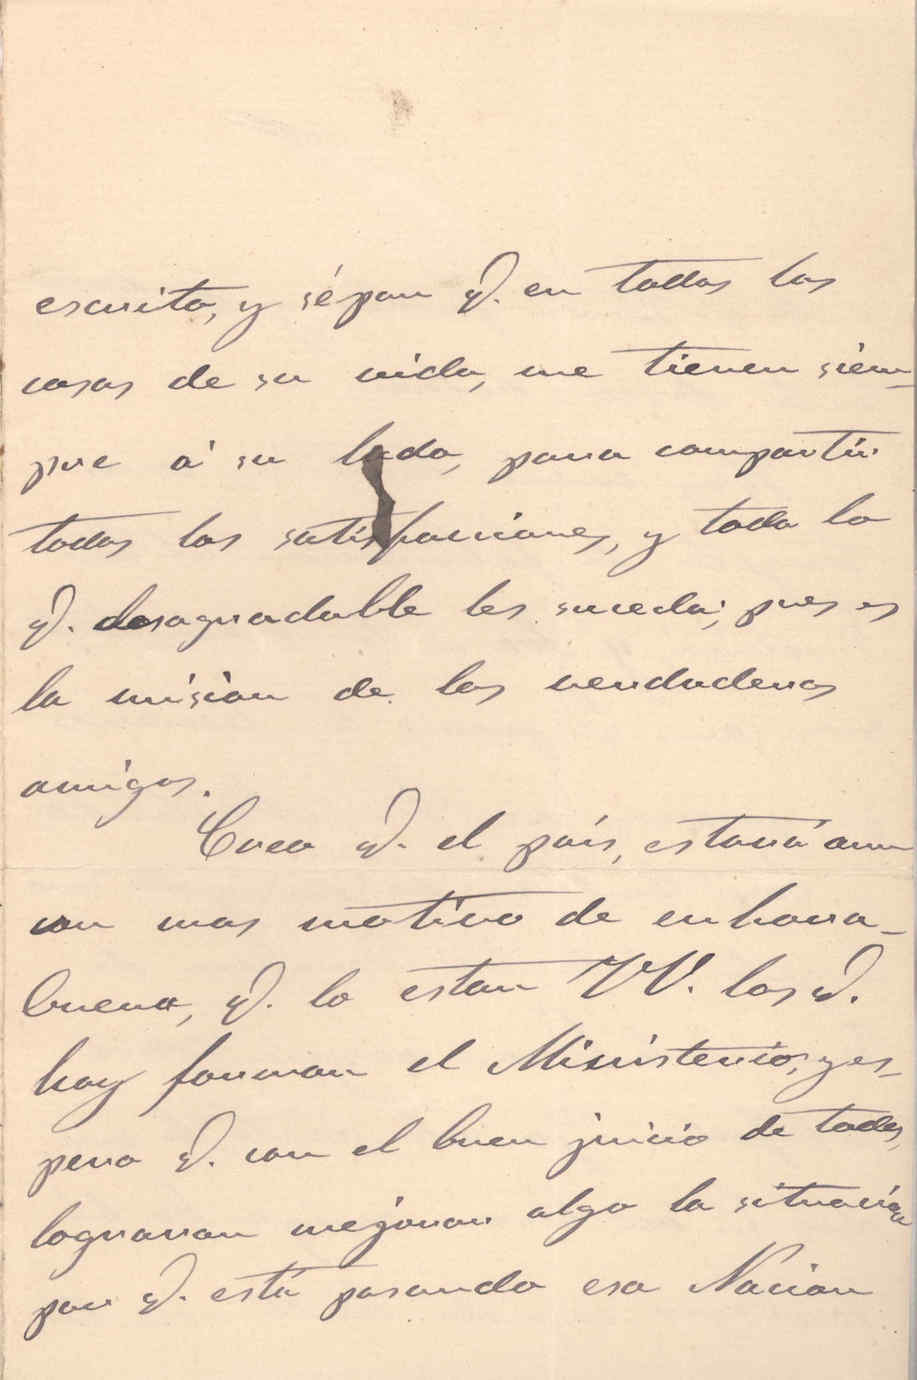 escrito, y sépan q. en todas las
cosas de su vida, me tienen siem-
pre á su lado, para compartir
todas las satisfacciones, y todo lo
q. desagradable les suceda; pues es
la mision de los verdaderos
amigos.
Creo q. el país, estará aun
con mas motivo de enhora-
buena, q. lo estan VV. los q.
hoy forman el Ministerio, y es-
pero q. con el buen juicio de todos,
lograran mejorar algo la situación
por q. está pasando esa Nacion